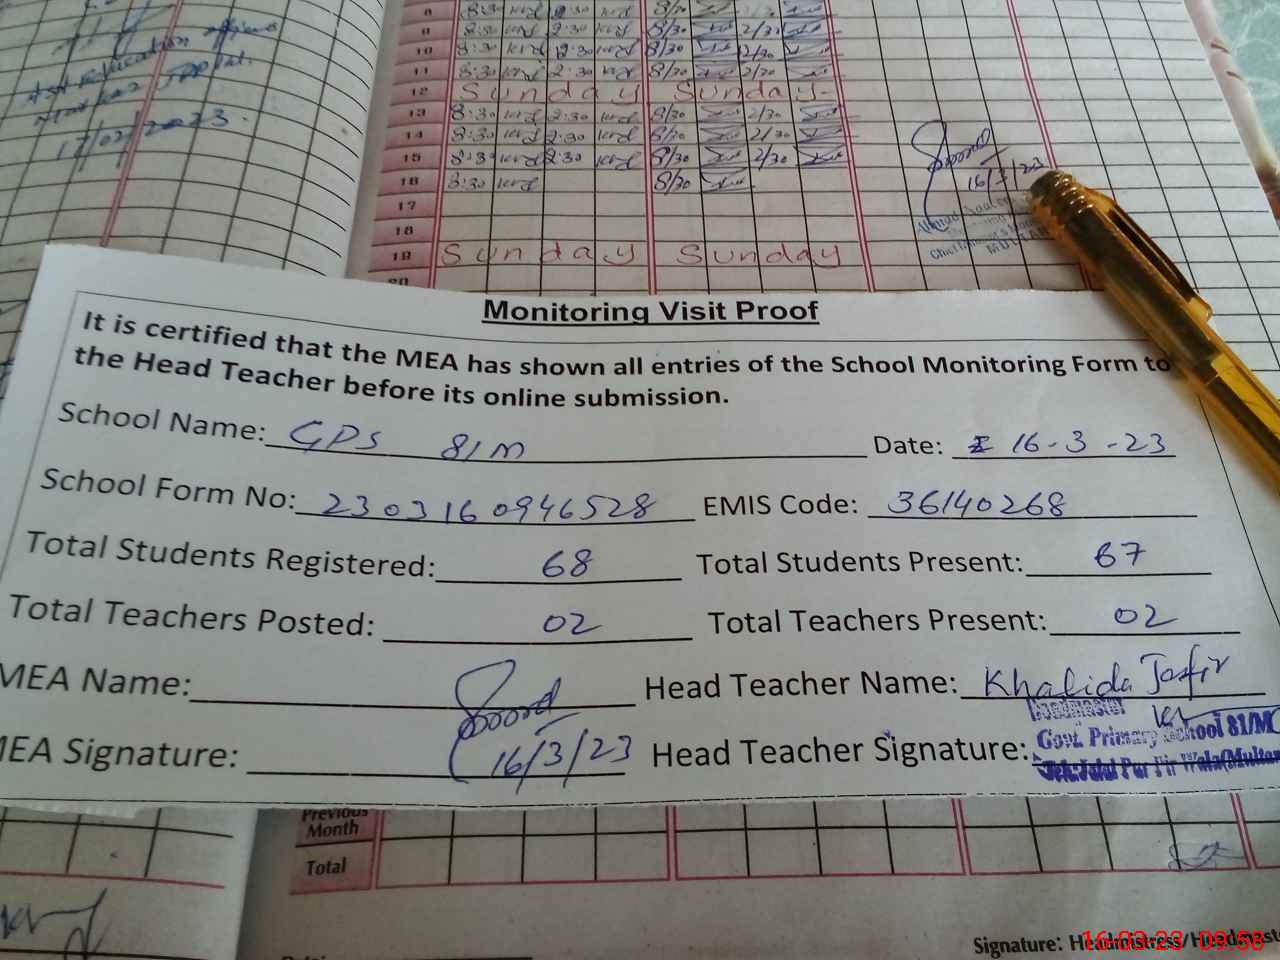 17/02/2023.
8 8:30 krd 2:30 krd 8/30 2/30
9 8:30 krd 2:30 krd 8/30 2/30
10 8:30 krd 12:30 krd 8/30 12/30
11 8:30 krd 2:30 krd 8/30 2/30
12 Sunday Sunday
13 8:30 krd 2:30 krd 8/30 2/30
14 8:30 krd 2:30 krd 8/30 2/30
15 8:30 krd 2:30 krd 8/30 2/30
16 8:30 krd 8/30
17
18
19 Sunday Sunday
20
16/3/23
Monitoring Visit Proof
It is certified that the MEA has shown all entries of the School Monitoring Form to
the Head Teacher before its online submission.
School Name: GPS 81 M Date: 16-3-23
School Form No: 230316 0946528 EMIS Code: 36140268
Total Students Registered: 68 Total Students Present: 67
Total Teachers Posted: 02 Total Teachers Present: 02
MEA Name: Head Teacher Name: Khalida
MEA Signature: 16/3/23 Head Teacher Signature:
Headmaster
Govt. Primary School 81/M
Jalal Pur Pir Wala(Multan
Previous
Month
Total
Signature: Headmistress/Headmast
16-03-23 09:58